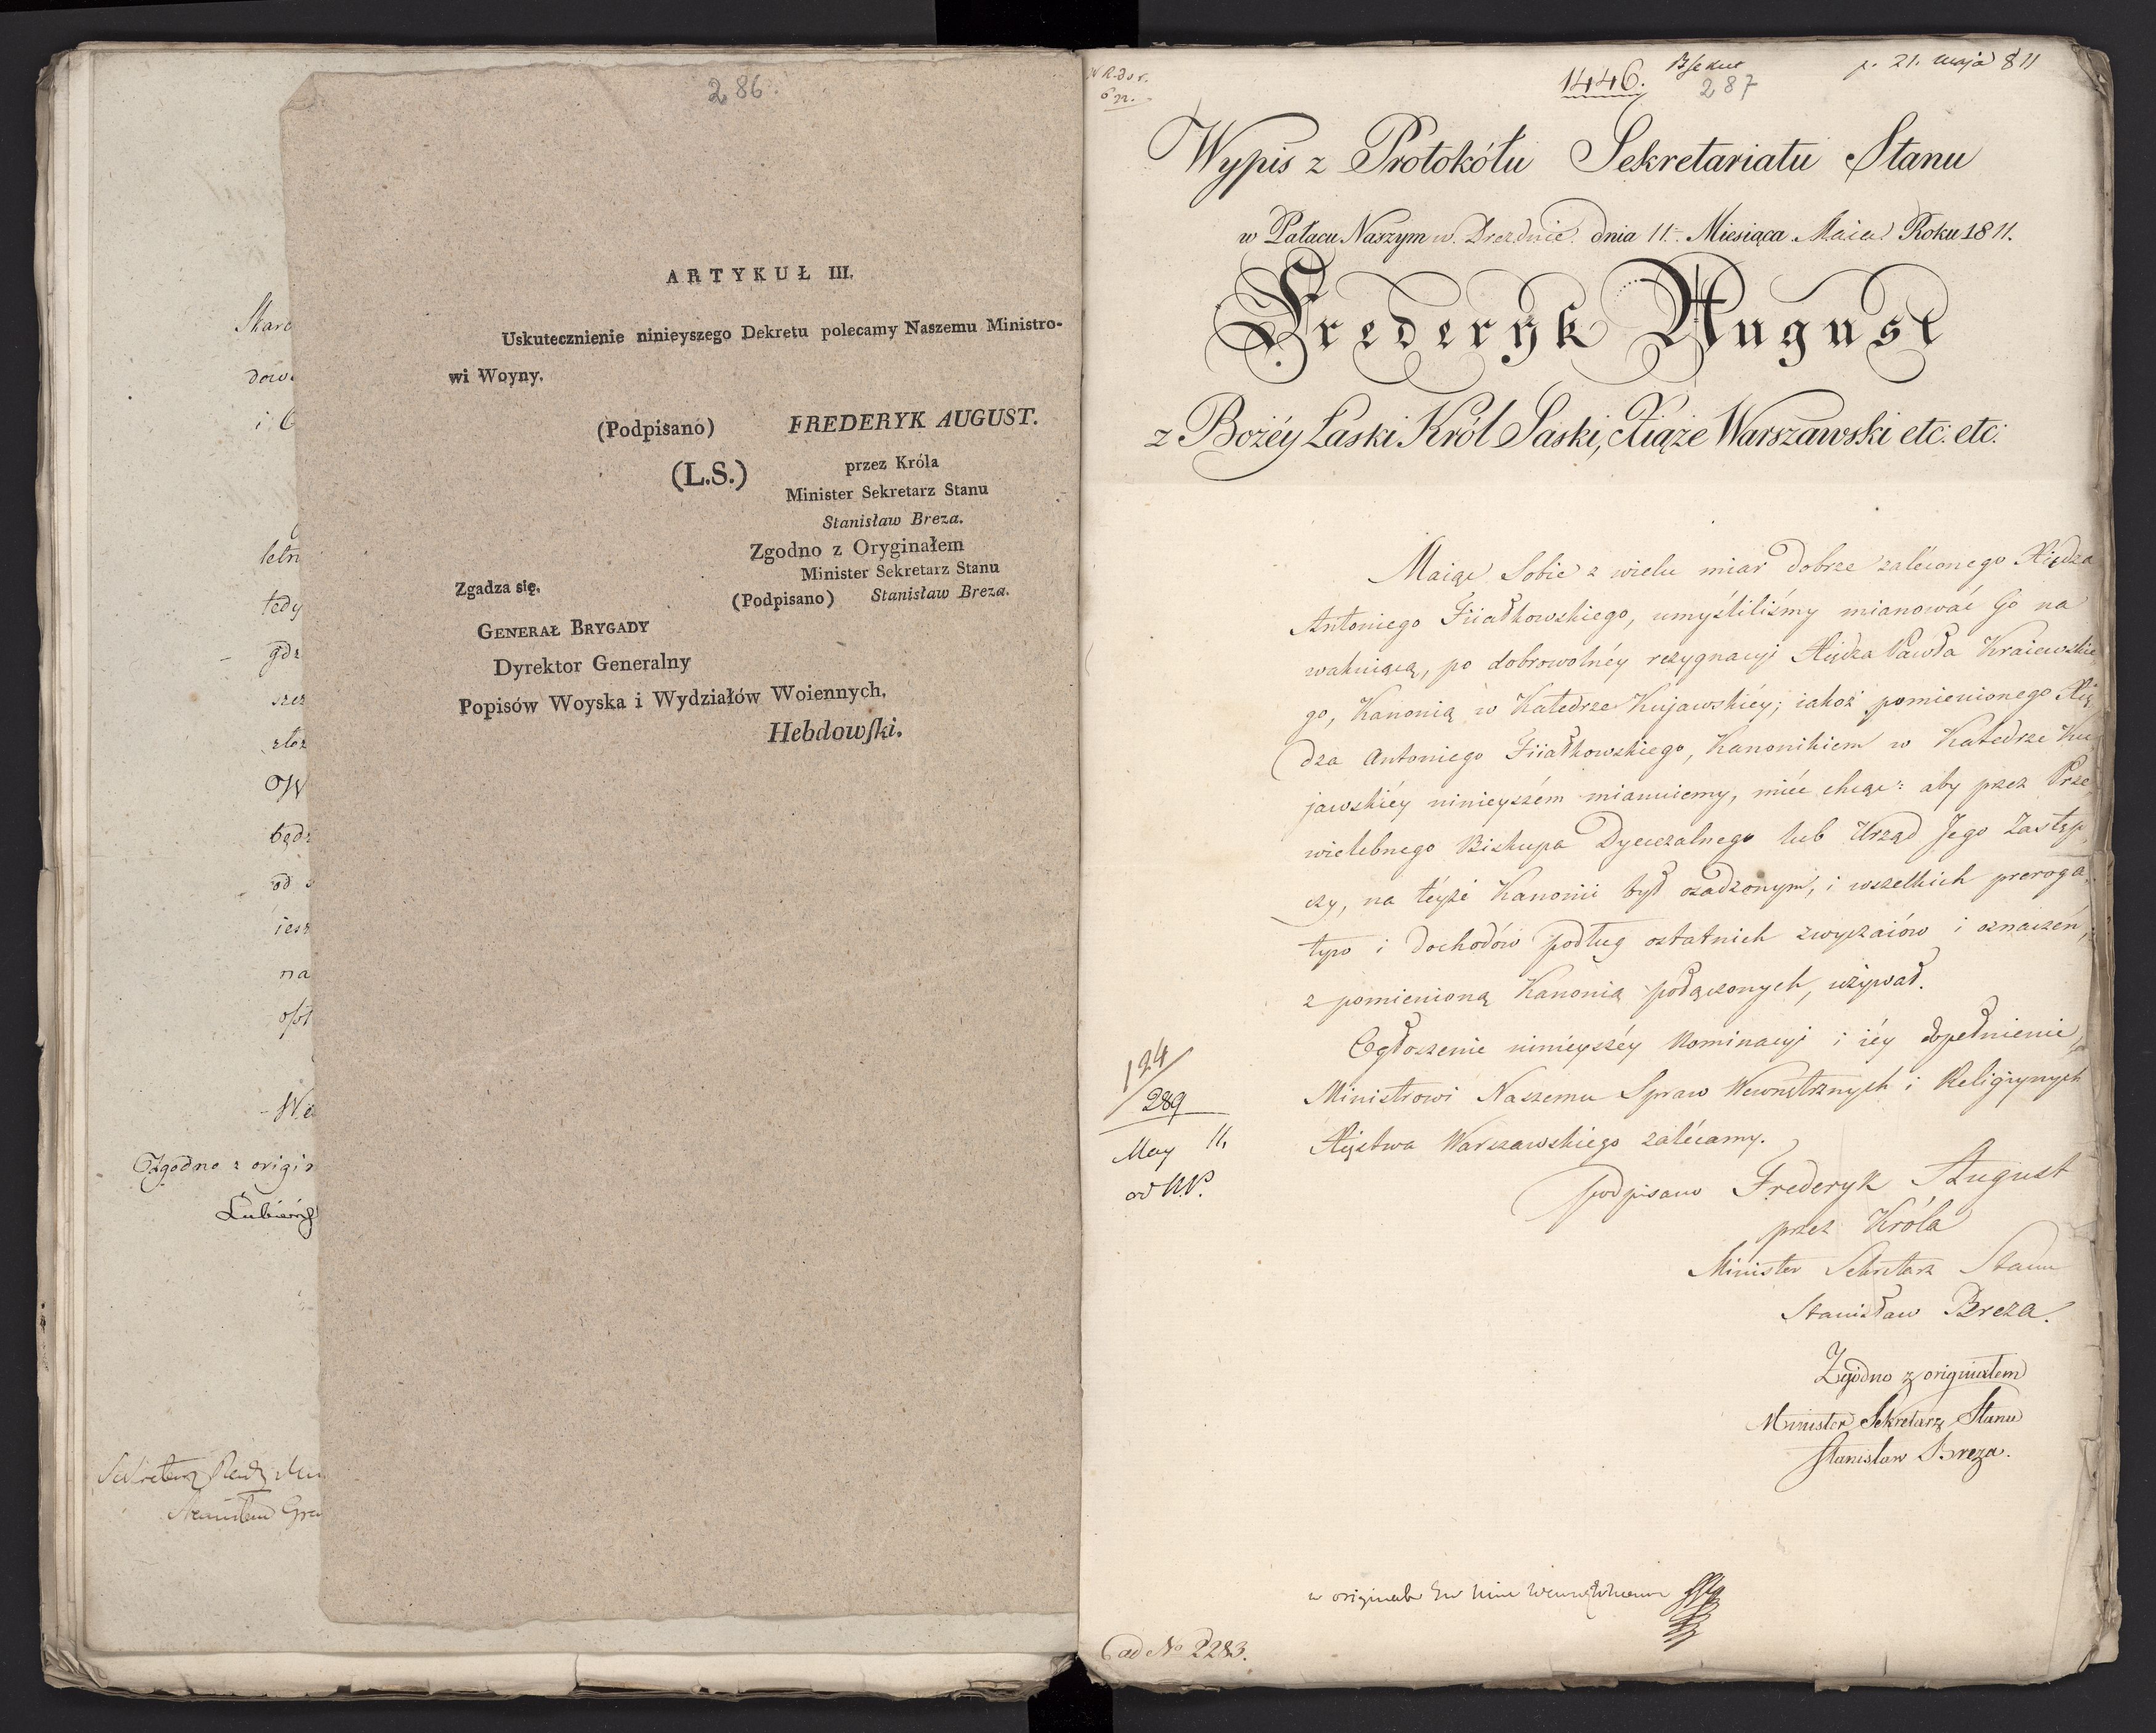 286.
ARTYKUŁ III.
Uskutecznienie ninieyszego Dekretu polecamy Naszemu Ministro-
wi Woyny.
(Podpisano) FREDERYK AUGUST.
(L.S.) przez Króla
Minister Sekretarz Stanu
Stanisław Breza.
Zgodno z Oryginałem
Minister Sekretarz Stanu
Zgadza się.
(Podpisano) Stanisław Breza.
GENERAŁ BRYGADY
Dyrektor Generalny
Popisów Woyska i Wydziałów Woiennych,
Hebdowſki.
Skarb
dow
i
letn
tedy
gdz
szez
złoz
W
będz
od
iesz
na
Zgodno z origin
Lubieńs
Sekretarz Rady
1446.
287
p. 21. maja 811
Wypis z Protokółu Sekretariatu Stanu
w Pałacu Naszym w Dreznie dnia 11. Miesiąca Maia Roku 1811.
Frederyk August
z Bożéy Łaski Król Saski, Xiąże Warszawski etc: etc:
Maiąc Sobie z wielu miar dobrze zaléconego Xiędza
Antoniego Fiiałkowskiego, umyśliliśmy mianować Go na
wakuiącą, po dobrowolnéy rezygnacyi Xiędza Pawła Kraiewskie
go, Kanonią w Katedrze Kujawskiéy; iakoż pomienionego Xię
dza Antoniego Fiiałkowskiego, Kanonikiem w Katedrze Ku
jawskiéy ninieyszém mianuiemy, miéć chcąc: aby przez Prze
wielebnego Biskupa Dyecezalnego lub Urząd Jego Zastęp,
czy, na téyże Kanonii był osadzonym, i wszelkich preroga,
tyw i dochodów podług ostatnich zwyczaiów i oznaczeń,
z pomienioną Kanonią połączonych, używał.
Ogłoszenie ninieyszéy Nominacyi i iéy dopełnienie,
Ministrowi Naszemu Spraw Wewnętrznych i Religiynych
Xięstwa Warszawskiego zalécamy.
124
289
May 11,
podpisano Frederyk August
przez Króla
Minister Sekretarz Stanu
Stanisław Breza.
Zgodno z originałem
Minister Sekretarz Stanu
Stanisław Breza.
ad No 2283.